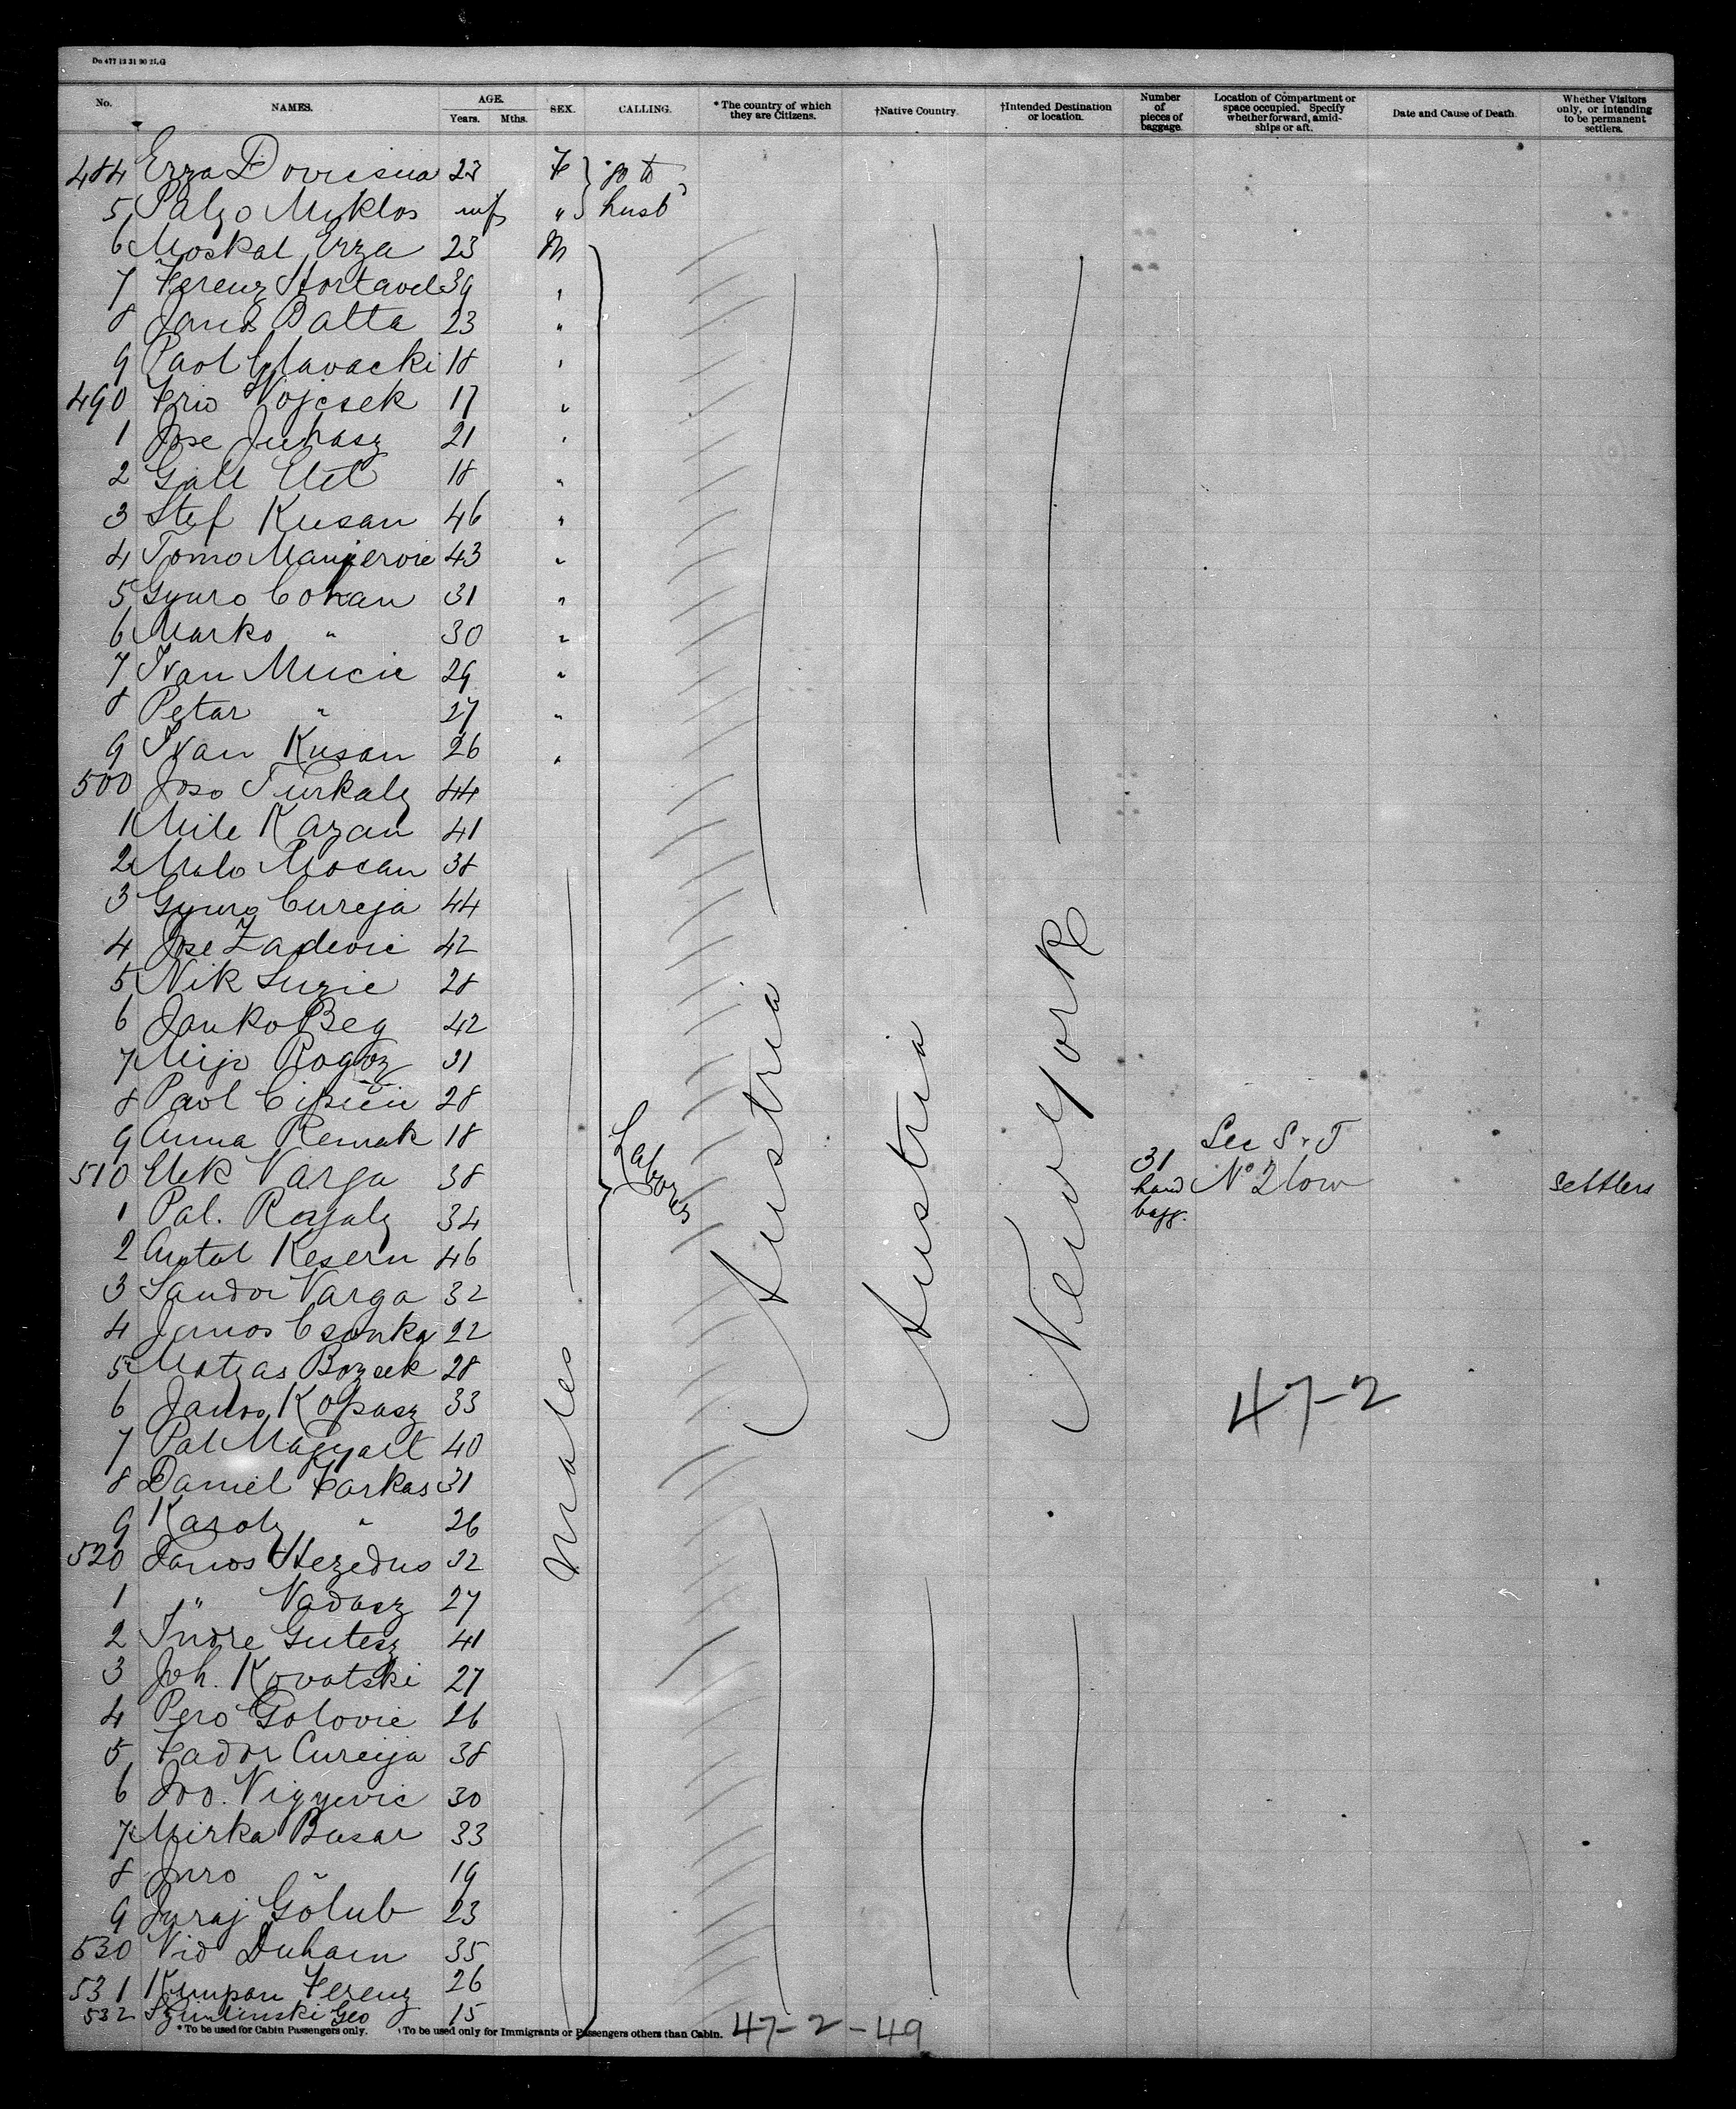 Do 477 13 31 90 2LG
No. NAMES. AGE. Years. Mths. SEX. CALLING. * The country of which they are Citizens. †Native Country. †Intended Destination or location. Number of pieces of baggage. Location of Compartment or space occupied. Specify whether forward, amidships or aft. Date and Cause of Death. Whether Visitors only, or intending to be permanent settlers.
484 Erza 23 F go to
5 Palzo Myklos inf " husb
6 Moskal Erza 23 M
7 Ferenz 39 "
8 Janos Balta 23 "
9 Paol Glavacki 18 "
490 Vojcsek 17 "
1 Jose Juhasz 21 "
2 Gall 18 "
3 Stef Kusan 46 "
4 Tomo 43 "
5 Gyuro Cokan 31 "
6 Marko " 30 "
7 Ivan Mucic 29 "
8 Petar " 27 "
9 Ivan Kusan 26 "
500 Joso Turkaly 44
1 Mile Kazan 41
2 Malo Mocan 38
3 Gyuro Cureja 44
4 Jose Zadevic 42
5 Nik Luzic 28
6 Janko Beg 42
7 Mijo Rogoz 31
8 Paol 28
9 Anna Remak 18
510 Elek Varga 38
1 Pal. Rogaly 34
2 Antal Keseru 46
3 Sandor Varga 32
4 Janos Csonka 22
5 Matyas Bozsek 28
6 Janos Kopasz 33
7 Pal 40
8 Daniel Farkas 31
9 Karoly " 26
520 Janos Hezedus 32
1 " Vadasz 27
2 Indre Gutesz 41
3 Joh. Kovatski 27
4 Pero Golovic 26
5 Fador Cureija 38
6 Jvo. 30
7 Mirka Busar 33
8 Juro " 19
9 Juraj Golub 23
530 Vid 35
531 Kumpan Ferenz 26
532 Geo 15
males
Labores
Austria
Austria
New York
31 hand bagg.
Sec S + T
No 2 low
Settlers
47-2
* To be used for Cabin Passengers only. † To be used only for Immigrants or Passengers others than Cabin.
47-2-49